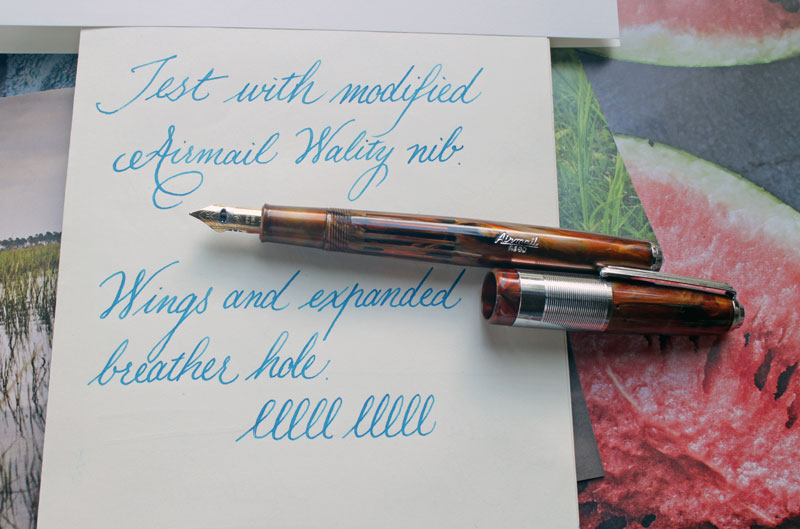 Test with modified
Airmail Wality nib.
Airmail
Wings and expanded
breather hole.
lllll lllll